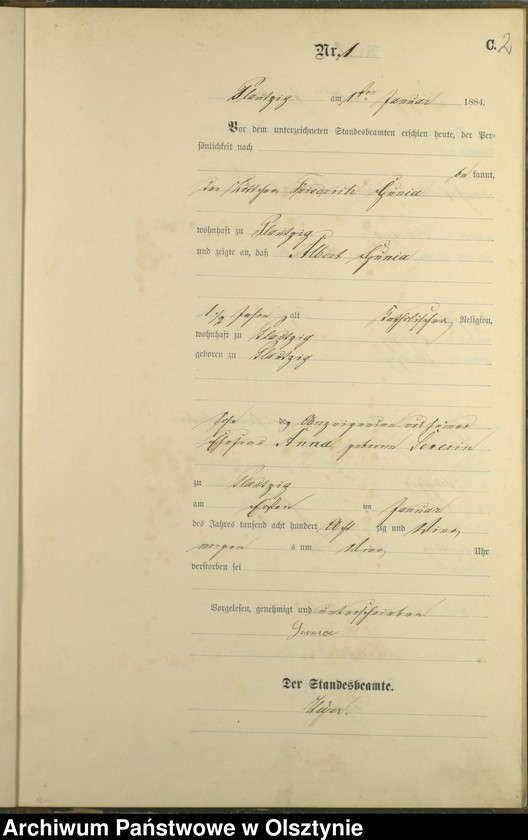 C. 2
Nr. 1
Plautzig am 1ten Januar 1884.
Vor dem unterzeichneten Standesbeamten erschien heute, der Per-
sönlichkeit nach
be kannt,
der Friedrich Hunia
wohnhaft zu Plautzig
und zeigte an, daß Albert Hunia
1 1/2 Jahre alt katholischer Religion,
wohnhaft zu Plautzig
geboren zu Plautzig
Sohn des Anzeigenden und seiner
Ehefrau Anna geborene Severin
zu Plautzig
am Ersten ten Januar
des Jahres tausend acht hundert Acht zig und vier
morgens um vier Uhr
verstorben sei
Vorgelesen, genehmigt und unterschrieben
Der Standesbeamte.
Archiwum Państwowe w Olsztynie